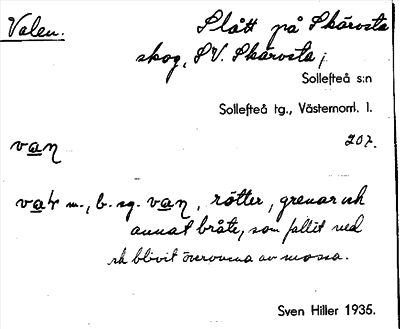 Valen. Slått på Skärvsta
skog, S V. Skärvsta;
Sollefteå s:n
Sollefteå tg., Västernorrl. l.
van 207.
var m., b. sg. van, rötter, grenar och
annat bråte, som fallit ned
och blivit övervuxna av mossa.
Sven Hiller 1935.